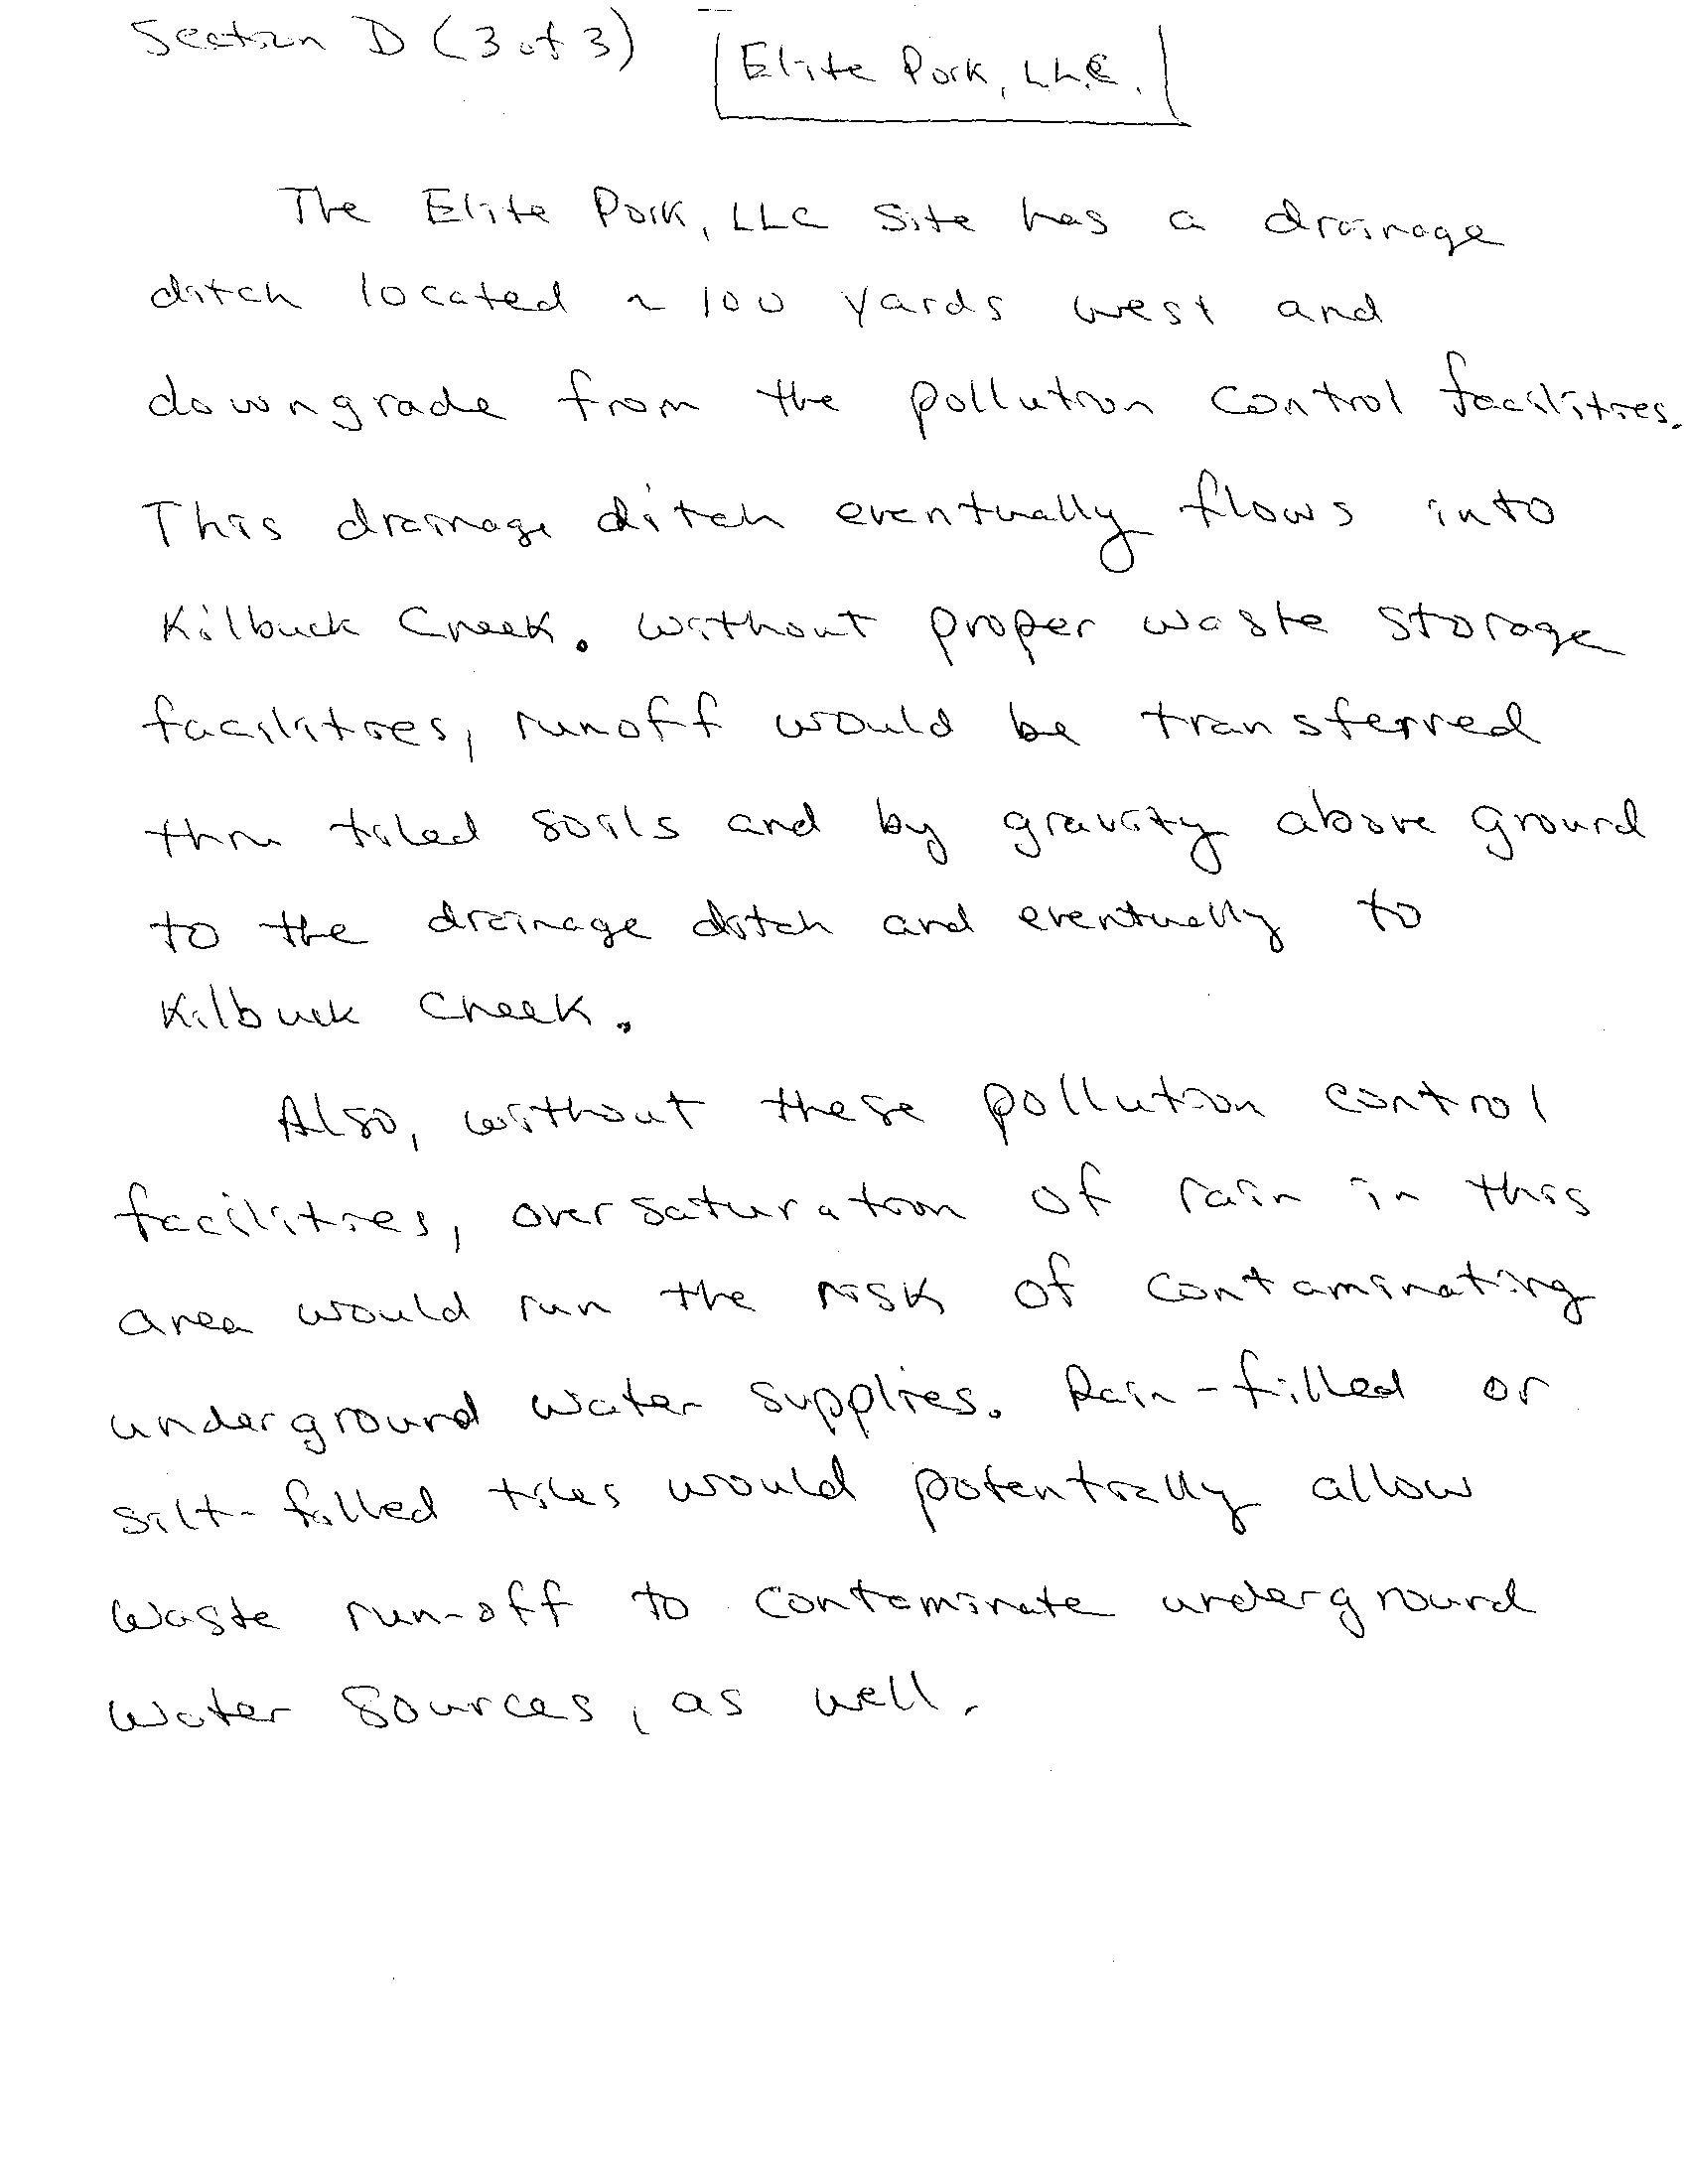 Section D (3 of 3)
Elite Pork, L.L.C.
The Elite Pork, LLC Site has a drainage
ditch located ~ 100 yards west and
downgrade from the pollution control facilities.
This drainage ditch eventually flows into
Kilbuck Creek. Without proper waste storage
facilities, runoff would be transferred
thru tiled soils and by gravity above ground
to the drainage ditch and eventually to
Kilbuck Creek.
Also, without these pollution control
facilities, over saturation of rain in this
area would run the risk of contaminating
underground water supplies. Rain-filled or
silt-filled tiles would potentially allow
waste run-off to contaminate underground
water sources, as well.